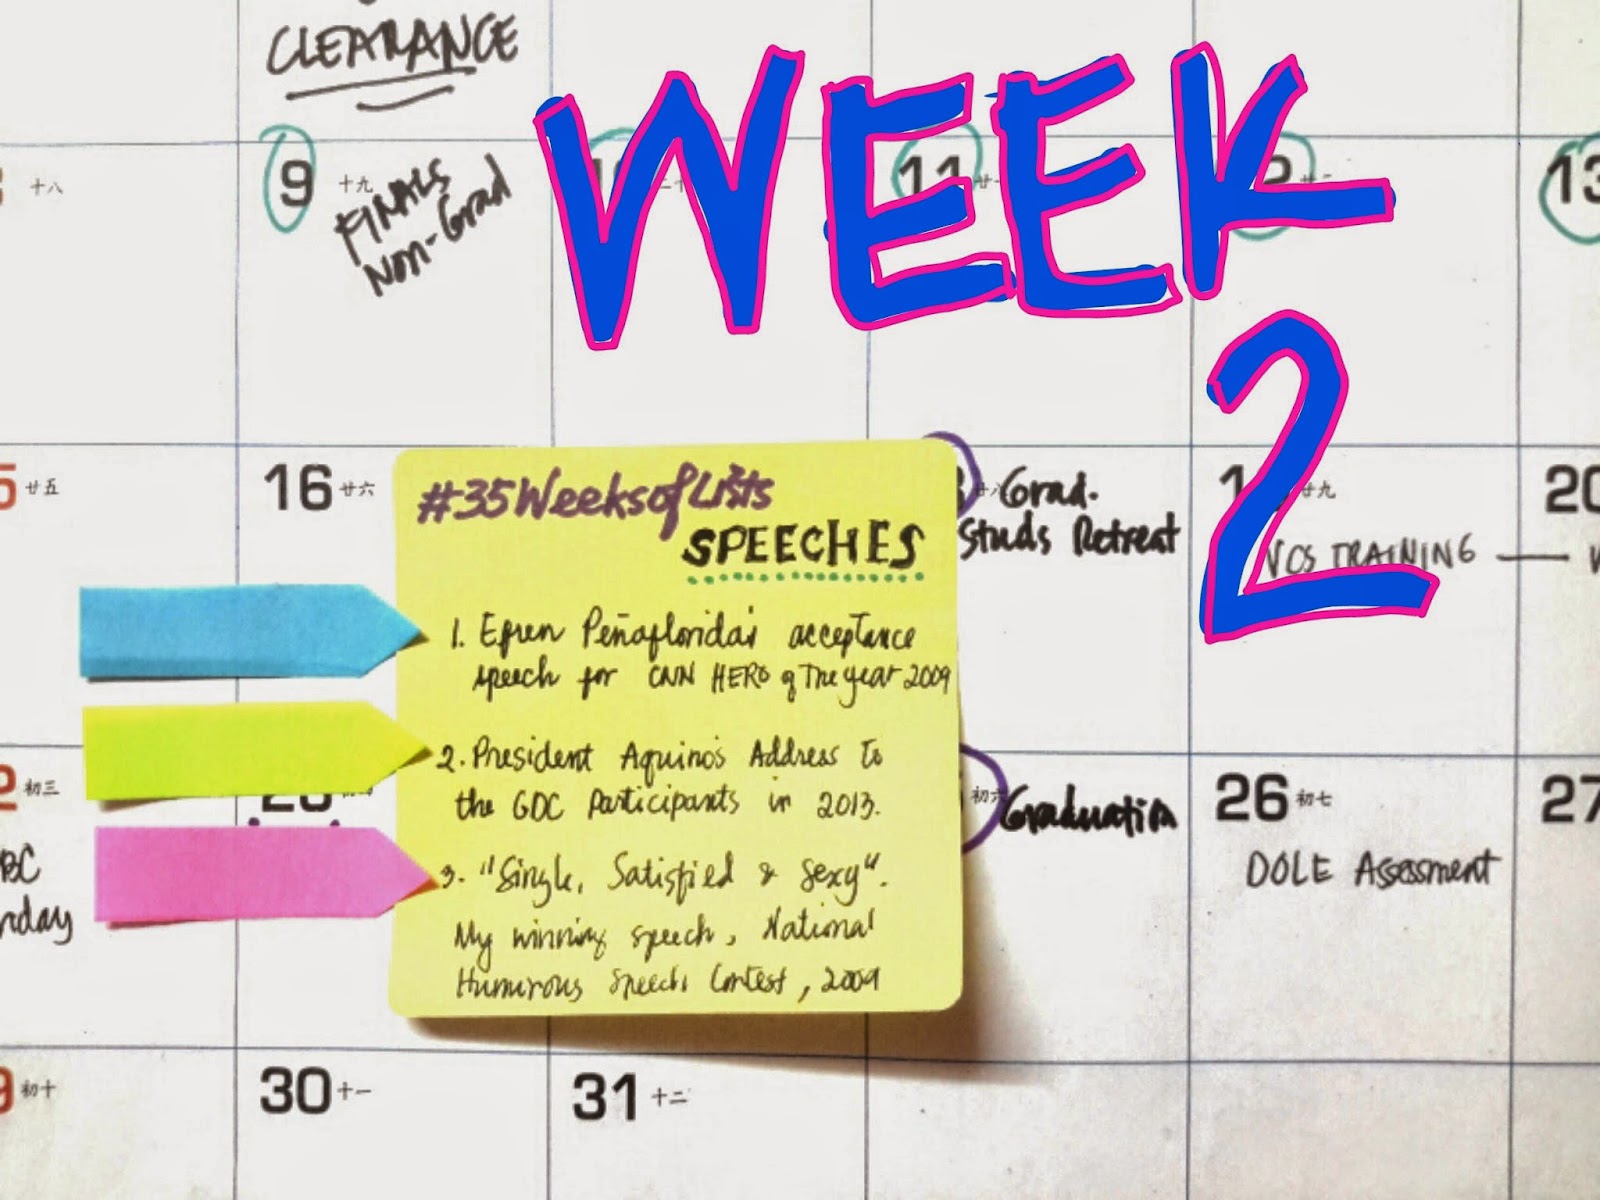 CLEARANCE
WEEK
2
十八
9 十九
FINALS
Non-Grad
11 廿一
13
5 廿五
16 廿六
廿八 Grad.
Studs Retreat
廿九
VCS TRAINING
20
#35WeeksofLists
SPEECHES
1. Efren Peñaflorida's acceptance
speech for CNN HERO of The year 2009
2. President Aquino's Address to
the GDC Participants in 2013.
3. "Single, Satisfied & Sexy".
My winning speech, National
Humurous Speech Contest, 2009
2 初三
初六 Graduation
26 初七
DOLE Assessment
27
9 初十
30 十一
31 十二